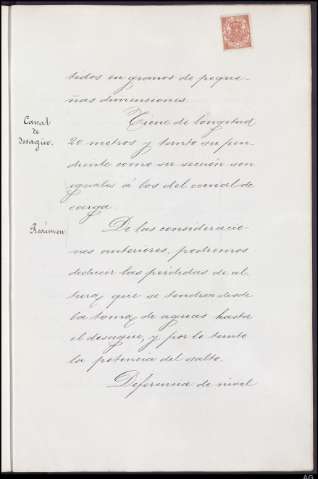 tados en granos de peque-
ñas dimensiones.
Canal
de
desagüe.
Tiene de longitud
20 metros y tanto su pen-
diente como su sección son
iguales á los del canal de
carga.
Resúmen.
De las consideracio-
nes anteriores, podremos
deducir las pérdidas de al-
tura, que se tendrán desde
la toma de aguas hasta
el desague, y por lo tanto
la potencia del salto.
Diferencia de nivel